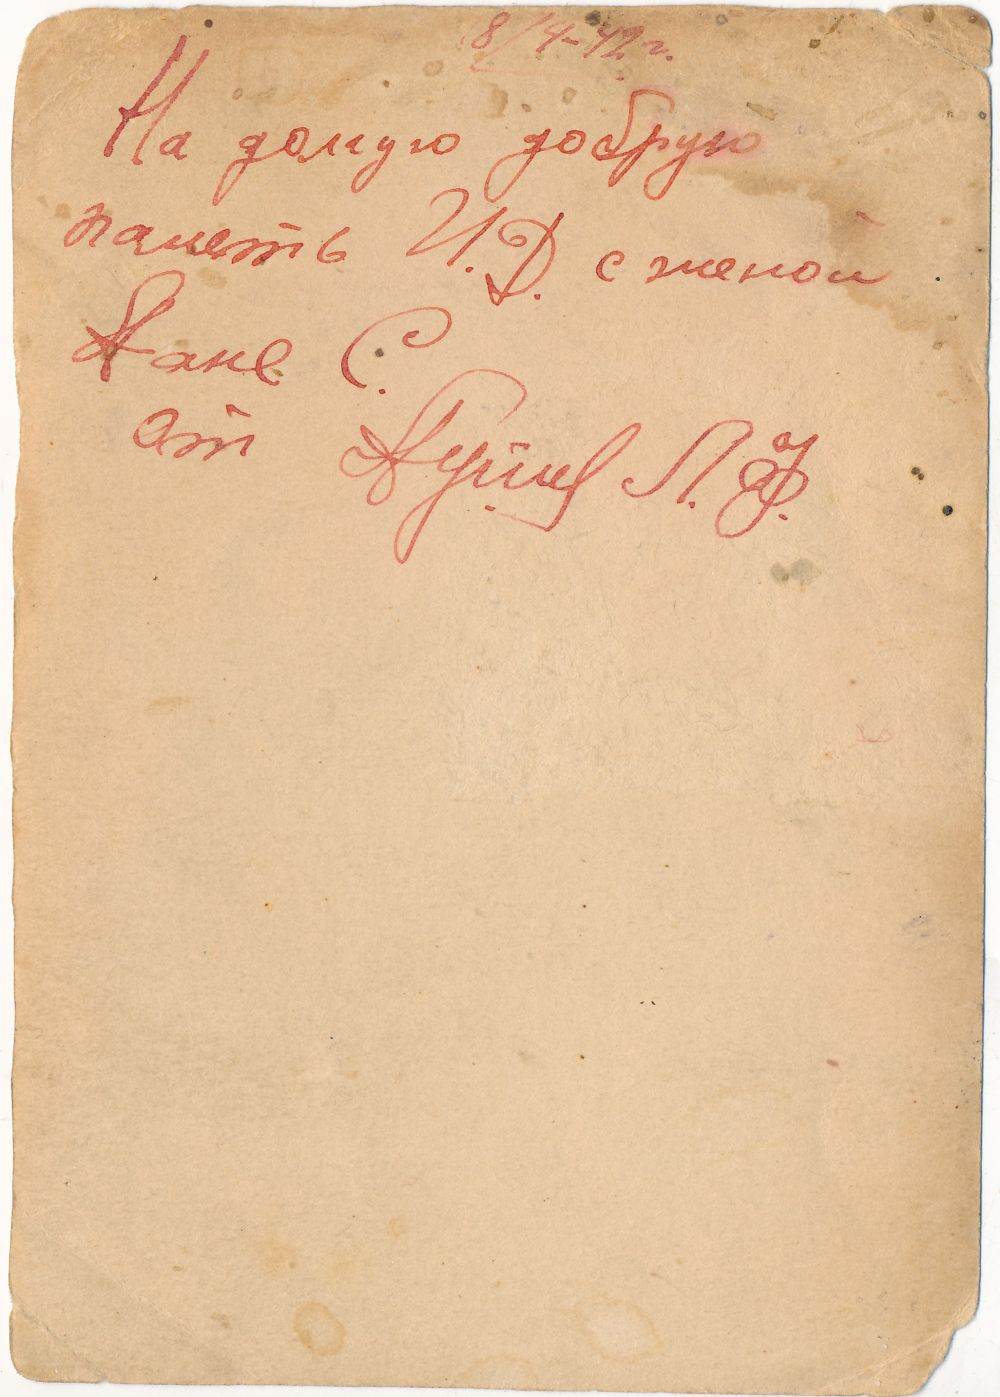 8/4-42 г.
На долгую добрую
память И.Д. с женой
С.
от Л. Ф.